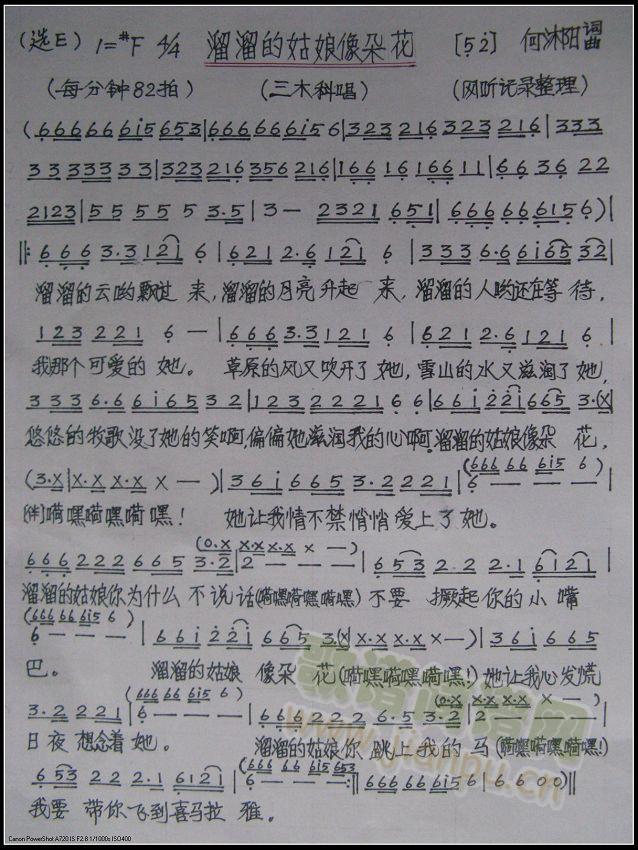 (选E) 1=#F 4/4 溜溜的姑娘像朵花 [5 2] 何沐阳 词曲
(每分钟82拍) (三木科唱) (网听记录整理)
(666666i5653|666666i56|323216323216|333
33333333|323216356216|166161661 1|66 36 22
2123|55 55 53.5|3— 2321 651|666666i56)|
‖:666 3.3 121 6|621 2.6 121 6|333 6.6 6i65 32|
溜溜的云哟飘过 来,溜溜的月亮升起 来, 溜溜的人哟还在等 待,
123 221 6 —|666 3.3 121 6|621 2.6 121 6|
我那个可爱的 她。 草原的风又吹开了 她, 雪山的水又滋润了她,
333 6.6 6i65 32|123 2221 66|66i 22i 665 3.(X|
悠悠的牧歌没了她的笑啊,偏偏她滋润我的心啊,溜溜的姑娘像朵 花,
(3.X|X.X X.X X —)|36i 665 3.2221|6 — — —|(666 66 6i5 6)
(伴)嗬嘿嗬嘿嗬嘿 嘿! 她让我情不禁悄悄 爱上了她。
666 222 665 3.2|2 — — —|(0.X|X.X X.X X —)|653 22 2.1 6121|
溜溜的姑娘你为什么 不说话(嗬嘿嗬嘿嗬嘿) 不要 撅起你的小 嘴
(666 66 6i5 6)
6 — — —|66i 22i 665 3.(X|X.X X.X X —)|36i 665|
巴。 溜溜的姑娘 像朵 花(嗬嘿嗬嘿嗬嘿!)她让我心发慌
3.2 221|6 — — —|(666 66 6i5 6)|666 222 6.5 3.2|2 — — —|(0.X|X.X X.X X —)
日夜 想念着 她。 溜溜的姑娘你 跳上我的马(嗬嘿嗬嘿嗬嘿!)
653 22 2.1 6121|6 — — —:‖(666 66 6i5 653)|666 66 6i5 6|6 6 0 0‖
我要 带你飞到喜马拉 雅。
歌谱简谱网
www.jianpu.cn
Canon PowerShot A720 IS F2.8 1/1000s ISO400